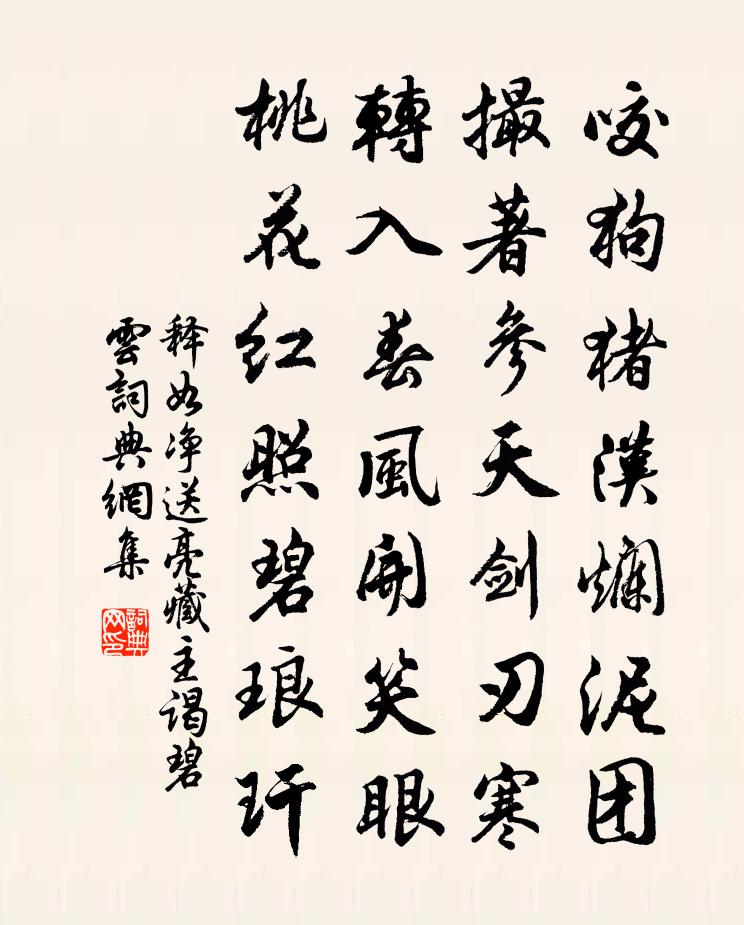 咬狗猪漢爛泥团
撮著參天剑刃寒
轉入春風開笑眼
桃花红照碧琅玕
释如净送亮藏主谒碧
雲詞典網集
詞典
网印